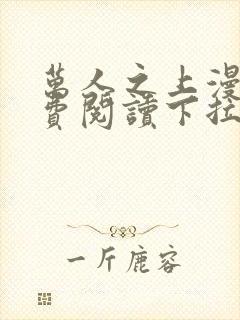 萬人之上漫
費閱讀下拉
一斤鹿容